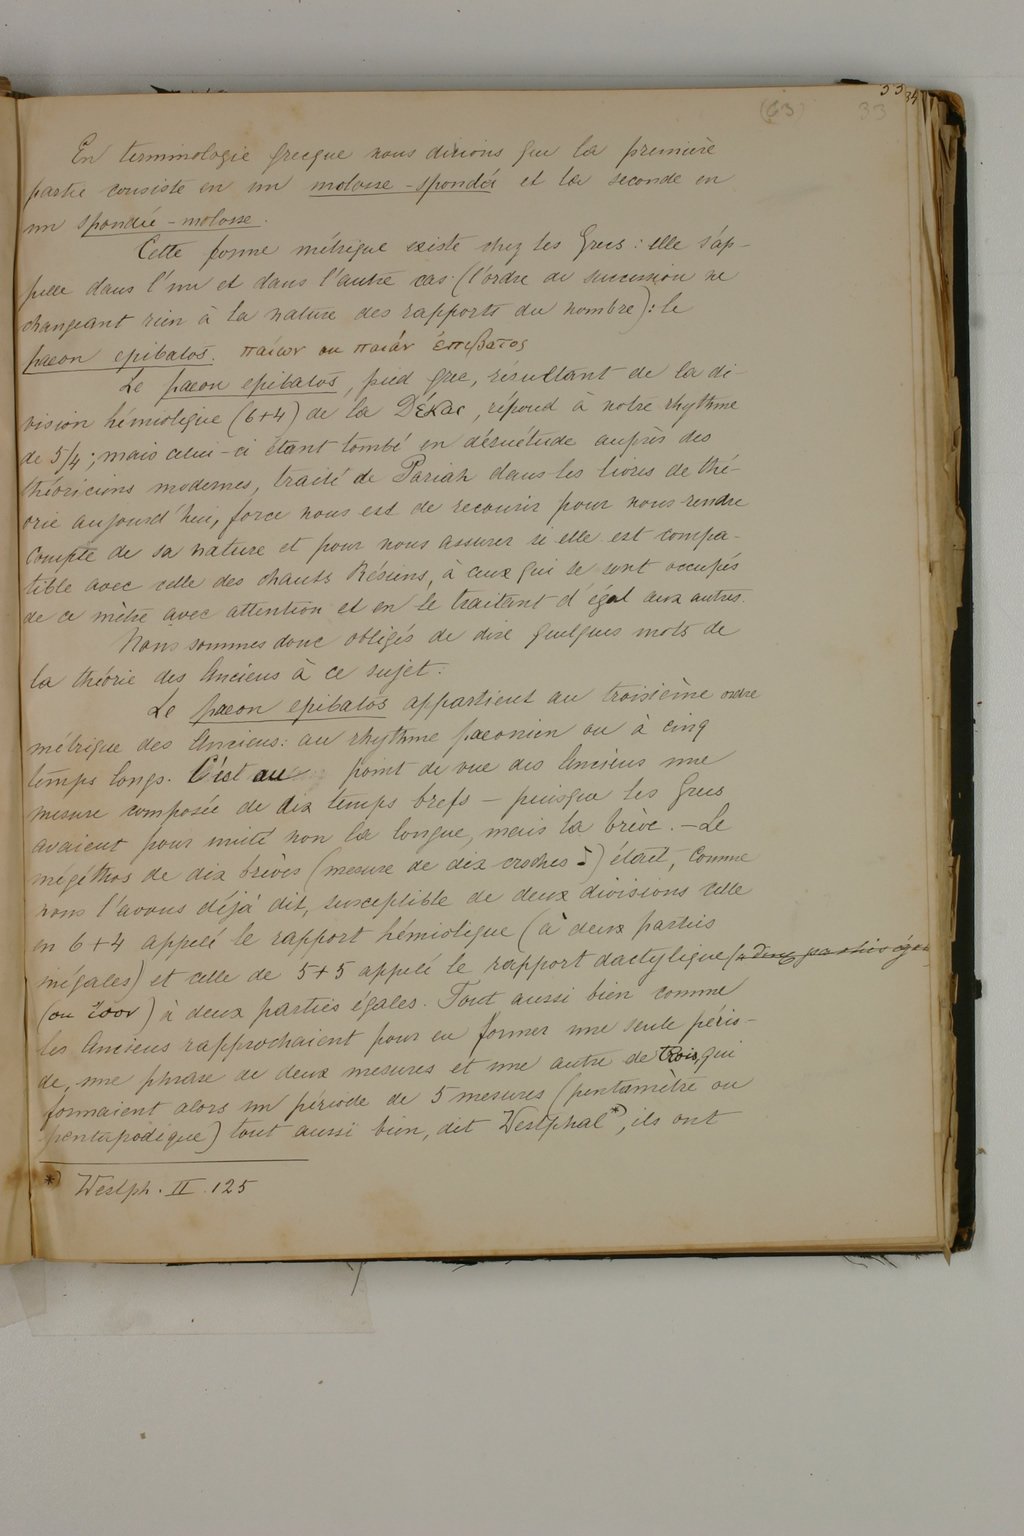 (63) 33 33 34
En terminologie grecque nous dirions que la première
partie consiste en un molosse-spondée et la seconde en
un spondée-molosse.
Cette forme métrique existe chez les Grecs: elle s'ap-
pelle dans l'un et dans l'autre cas (l'ordre de succession ne
changeant rien à la nature des rapports du nombre): le
paeon epibatos. παίων ou παιάν έπιβατος
Le paeon epibatos, pied grec, résultant de la di-
vision hémiolique (6+4) de la Δέκας, répond à notre rhythme
de 5/4; mais celui-ci étant tombé en désuétude auprès des
théoriciens modernes, traité de Pariah dans les livres de thé-
orie aujourd'hui, force nous est de recourir pour nous rendre
compte de sa nature et pour nous assurer si elle est compa-
tible avec celle des chants Résiens, à ceux qui se sont occupés
de ce mètre avec attention et en le traitant d'égal aux autres.
Nous sommes donc obligés de dire quelques mots de
la théorie des Anciens à ce sujet:
Le paeon epibatos appartient au troisième ordre
métrique des Anciens: au rhythme paeonien ou à cinq
temps longs. C'est au point de vue des Anciens une
mesure composée de dix temps brefs – puisque les Grecs
avaient pour unité non la longue, mais la brève. – Le
mégéthos de dix brèves (mesure de dix croches) était, comme
nous l'avons déjà dit, susceptible de deux divisions celle
en 6+4 appelé le rapport hémiolique (à deux parties
inégales) et celle de 5+5 appelé le rapport dactylique (à deux parties éga
(ou ἴσον) à deux parties égales. Tout aussi bien comme
les Anciens rapprochaient pour en former une seule pério-
de, une phrase de deux mesures et une autre de trois, qui
formaient alors un période de 5 mesures (pentamètre ou
pentapodique) tout aussi bien, dit Westphal*), ils ont
*) Westph. II. 125